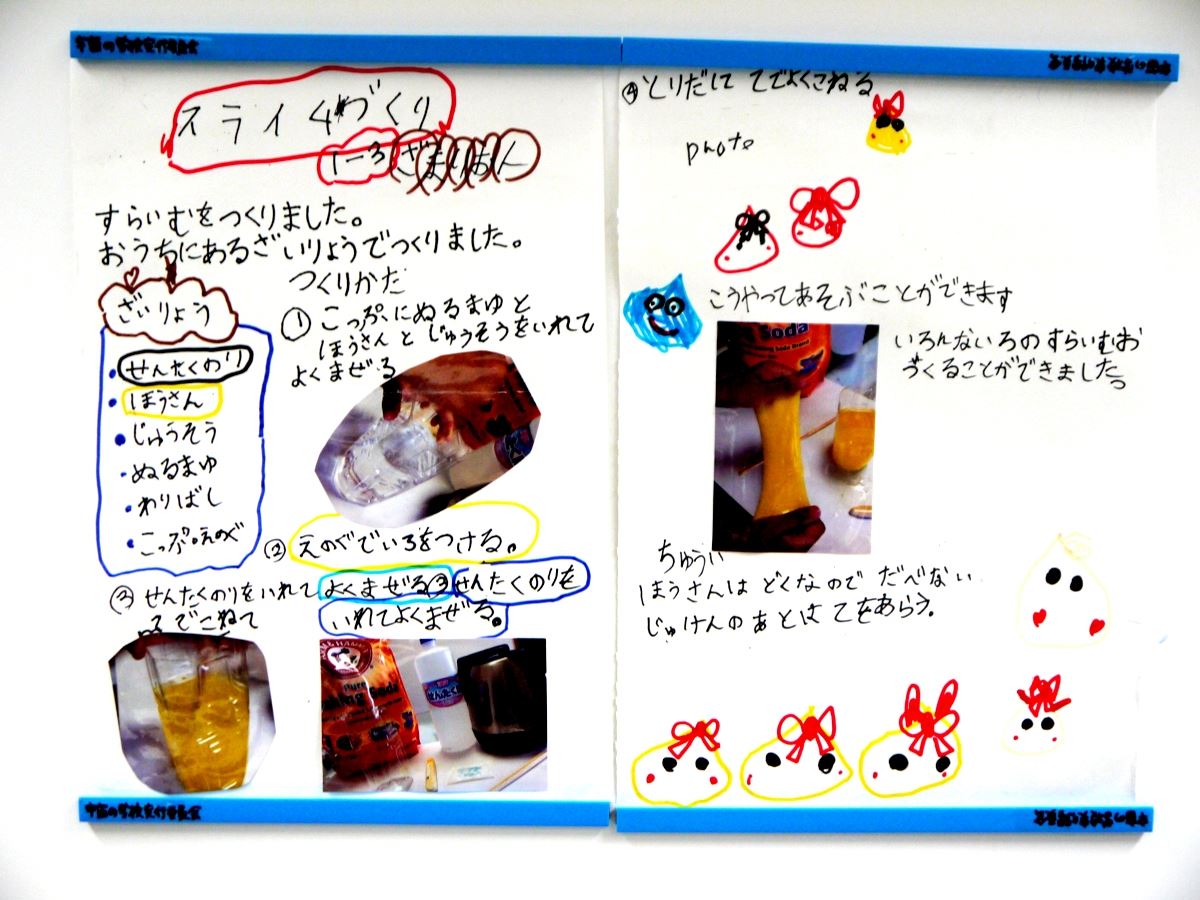 宇宙の学校実行委員会
スライムづくり
1-3
すらいむをつくりました。
おうちにあるざいりょうでつくりました。
ざいりょう
・せんたくのり
・ほうさん
・じゅうそう
・ぬるまゆ
・わりばし
・こっぷ。えのぐ
つくりかた
① こっぷにぬるまゆと
ほうさんとじゅうそうをいれて
よくまぜる
② えのぐでいろをつける。
③ せんたくのりをいれてよくまぜる③せんたくのりを
いれてよくまぜる。
でこねて
Pure
Baking Soda
宇宙の学校実行委員会
宇宙の学校実行委員会
④とりだして てでよくこねる
photo
こうやってあそぶことができます
Soda
いろんないろのすらいむお
づくることができました。
ちゅうい
ほうさんは どくなので だべない
じゅけんのあとは てをあらう。
宇宙の学校実行委員会